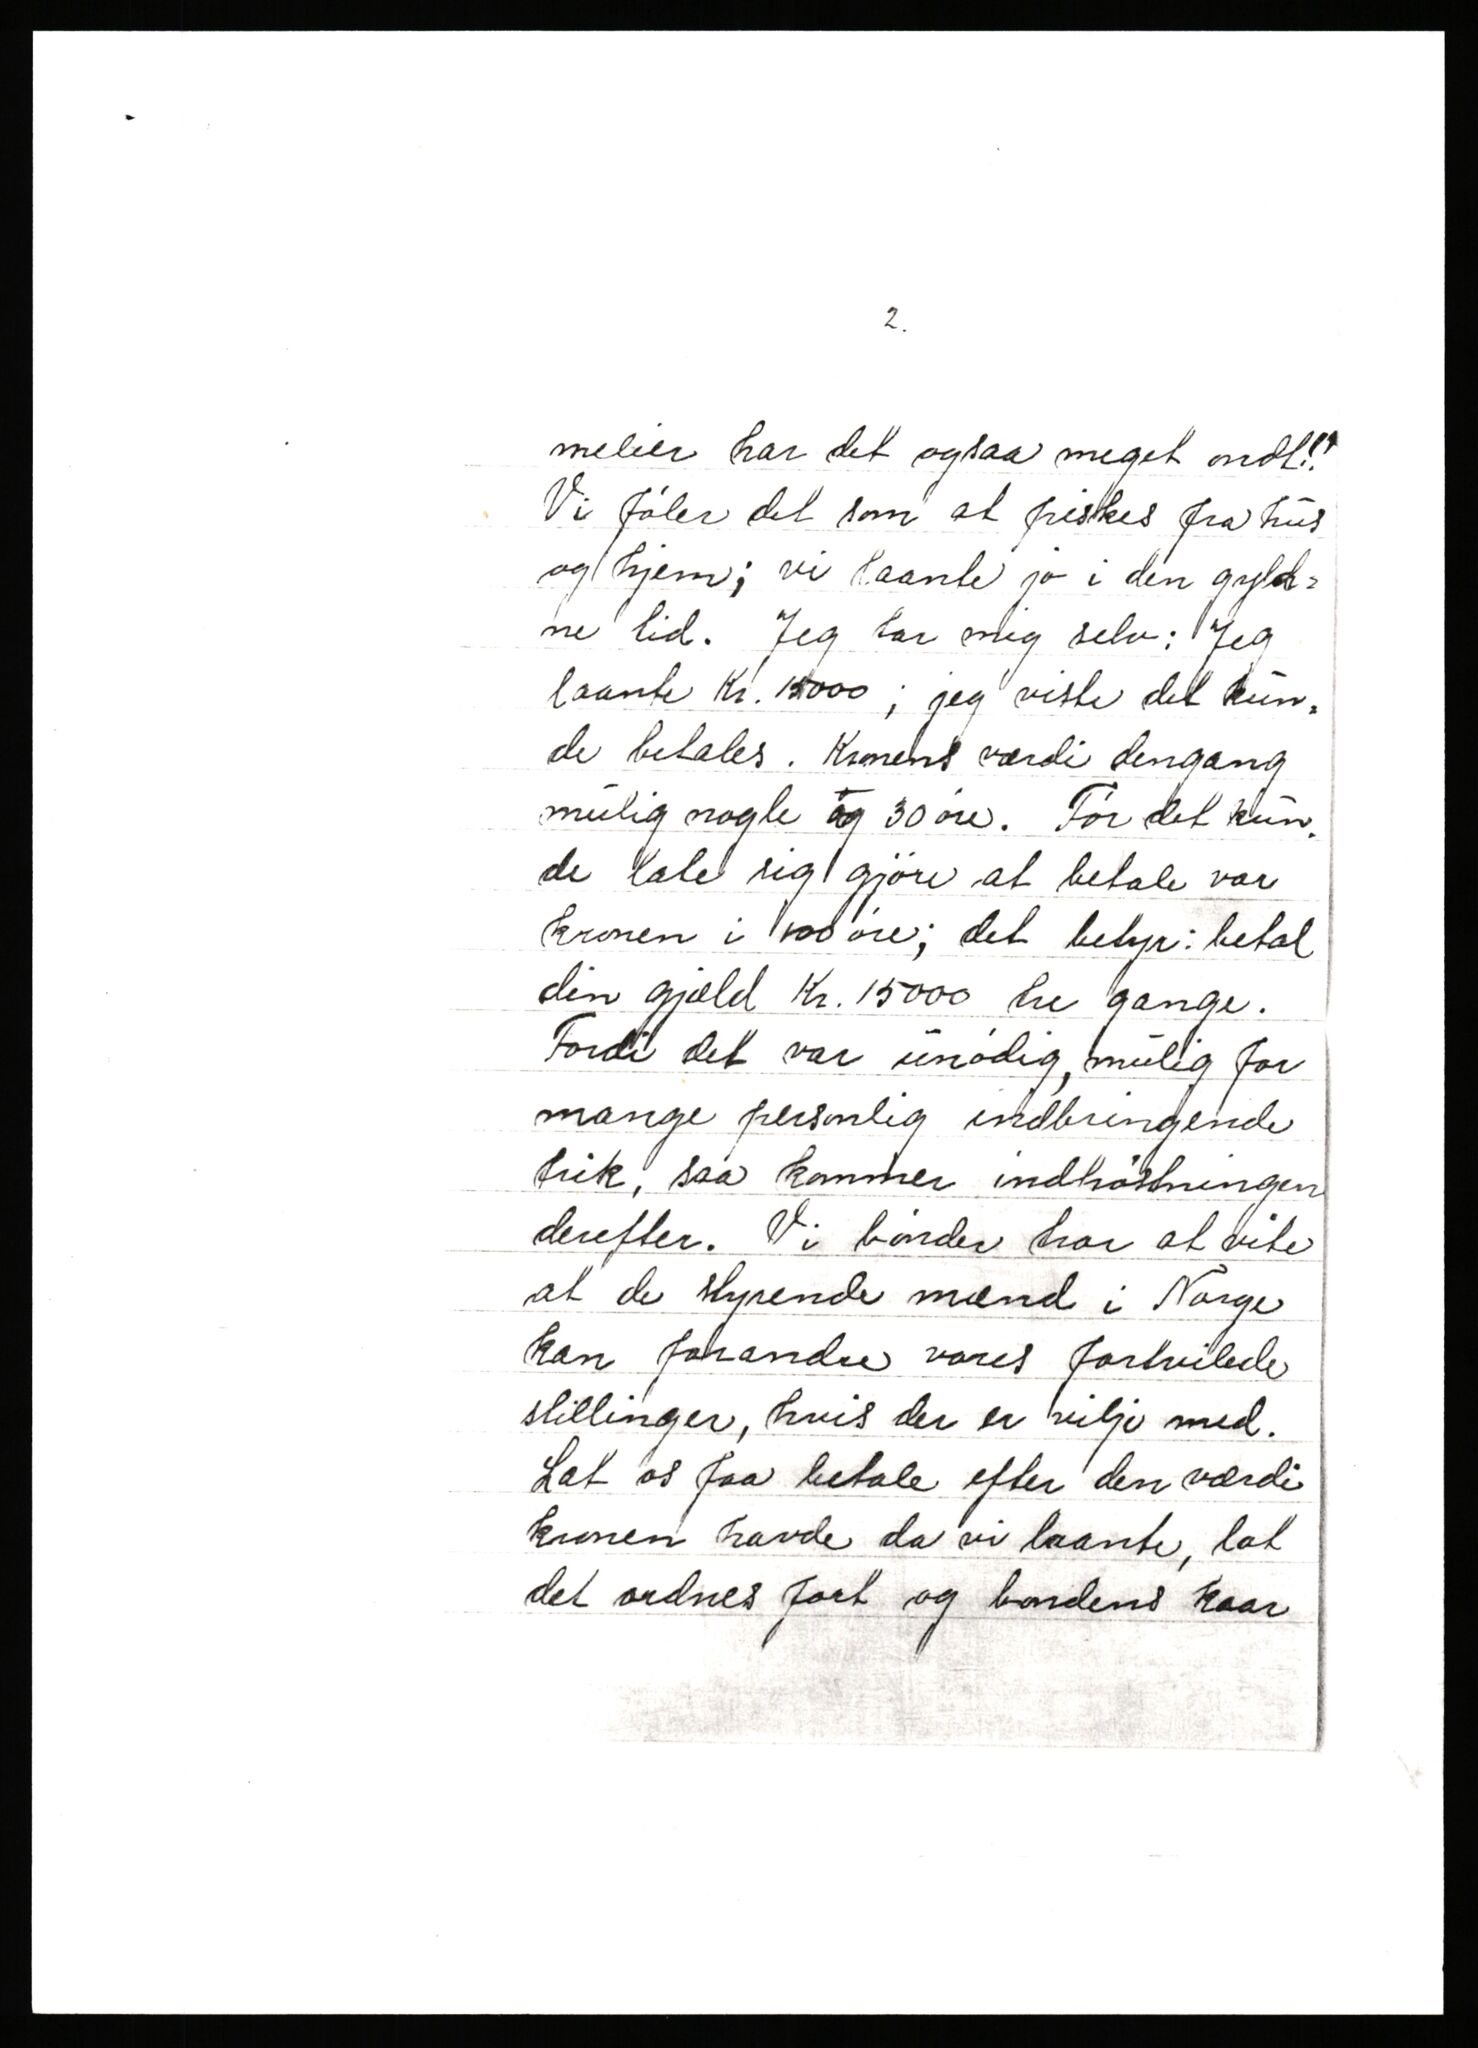 2.
melier har det ogsaa meget ondt!!"
Vi føler det som at friskes fra hus
og hjem; vi laante jo i den gyld=
ne tid. Jeg tar mig selv: Jeg
laante Kr. 15000; jeg viste det kun=
de betales. Kronens værdi dengang
mulig nogle og 30 øre. Før det kun=
de late sig gjøre at betale var
kronen i 100 øre; det betyr: betal
din gjæld Kr. 15000 tre gange.
Fordi det var unødig, mulig for
mange personlig indbringende
trik, saa kommer indhøstningen
derefter. Vi bønder har at vite
at de styrende mænd i Norge
kan forandre vores fortvilede
stillinger, hvis der er vilje med.
Lat os faa betale efter den værdi
kronen havde da vi laante, lat
det ordnes fort og bondens kaar